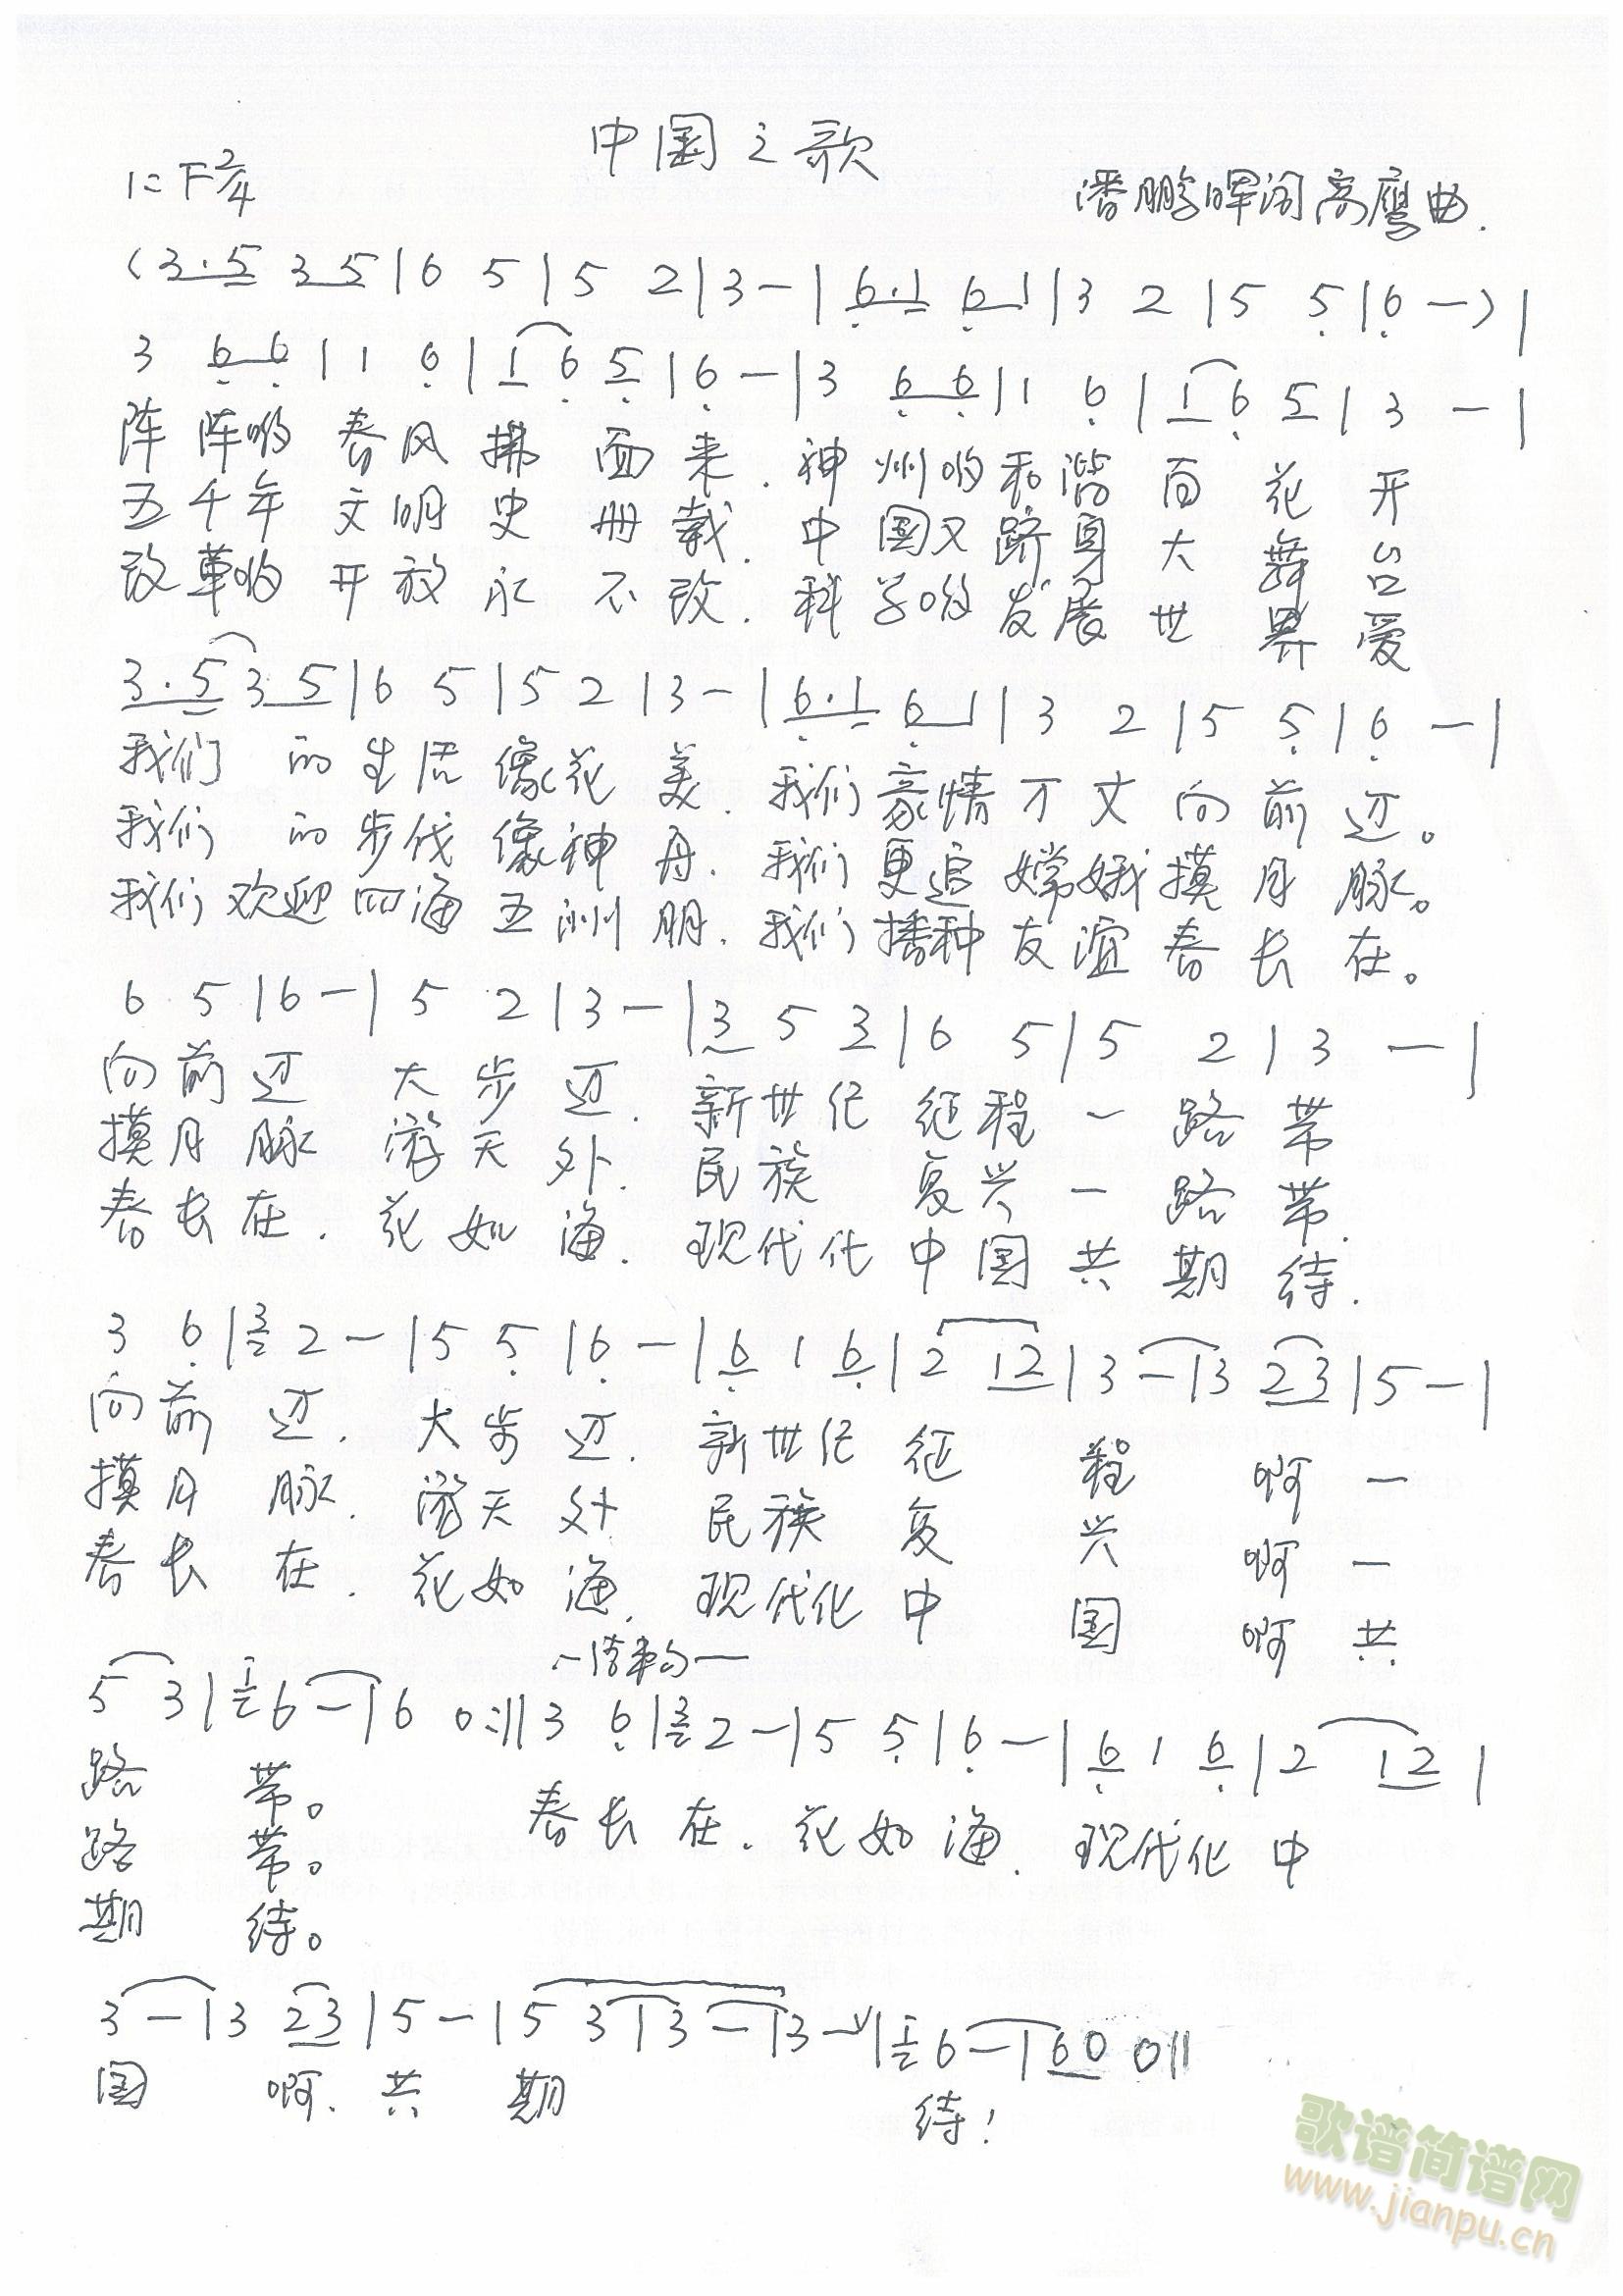 中国之歌
1=F 2/4
潘鹏晖词 高鹰曲.
(3·5 35|6 5|5 2|3-|6·1 61|3 2|5 5|6-)|
3 66|1 6|1 6 5|6-|3 66|1 6|1 6 5|3-|
阵阵哟春风拂面来.神州哟和谐百花开
五千年文明史册载.中国又跻身大舞台
改革哟开放永不改.科学哟发展世界爱
3·5 35|6 5|5 2|3-|6·1 61|3 2|5 5|6-|
我们的生活像花美.我们豪情万丈向前迈。
我们的步伐像神舟.我们更追嫦娥摸月脉。
我们欢迎四海五洲朋.我们播种友谊春长在。
6 5|6-|5 2|3-|3 5 3|6 5|5 2|3-|
向前迈 大步迈.新世纪征程一路带
摸月脉 游天外.民族复兴一路带.
春长在.花如海.现代化中国共期待.
3 6|3 2-|5 5|6-|6 1 6|2 12|3-|3 23|5-|
向前迈.大步迈.新世纪征程啊一
摸月脉.游天外 民族复兴啊一
春长在.花如海.现代化中国啊共
-结束句-
5 3|1 6-|6 0:||3 6|3 2-|5 5|6-|6 1 6|2 12|
路带。 春长在.花如海.现代化中
路带。
期待。
3-|3 23|5-|5 3|3-|3-∨|1 6-|60 0||
国啊.共期待!
歌谱简谱网
www.jianpu.cn